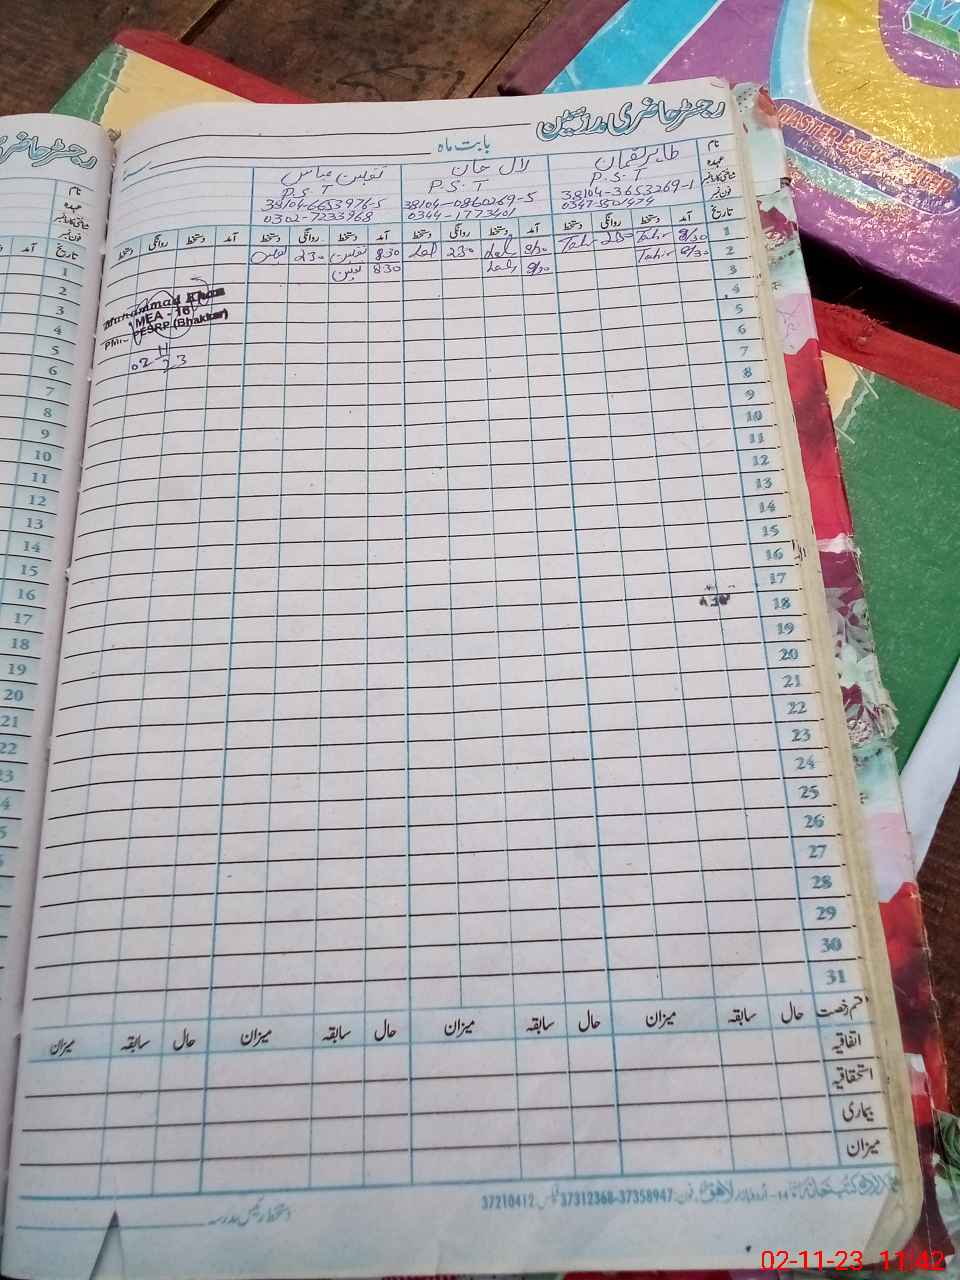 رجسٹر حاضری مدرسین
بابت ماہ
نام
عہدہ
شناختی کارڈ نمبر
فون نمبر
طاہر لقمان
P.S.T
38104-3653269-1
0347-5501474
لال خان
P.S.T
38104-0860269-5
0344-1773401
P.S.T
38104-6653976-5
0302-7233768
تاریخ آمد دستخط روانگی دستخط آمد دستخط روانگی دستخط آمد دستخط روانگی دستخط آمد دستخط روانگی دستخط
1 8/30 Tahir 230 Tahir 8/30 230 830 230
2 8/30 Tahir 8/30 830
3
4
5
6
7
8
9
10
11
12
13
14
15
16
17
18
19
20
21
22
23
24
25
26
27
28
29
30
31
Muhammad Khan
MEA - 16
PESRP (Bhakkar)
02-11-23
قسم رخصت حال سابقہ میزان حال سابقہ میزان حال سابقہ میزان حال سابقہ میزان
اتفاقیہ
استحقاقیہ
بیماری
میزان
14-اردو بازار لاہور فون: 37358947-37312368 فیکس: 37210412
دستخط رئیس مدرسہ
MASTER
نام
عہدہ
شناختی کارڈ نمبر
فون نمبر
تاریخ آمد
1
2
3
4
5
6
7
8
9
10
11
12
13
14
15
16
17
18
19
20
21
22
02-11-23 11:42